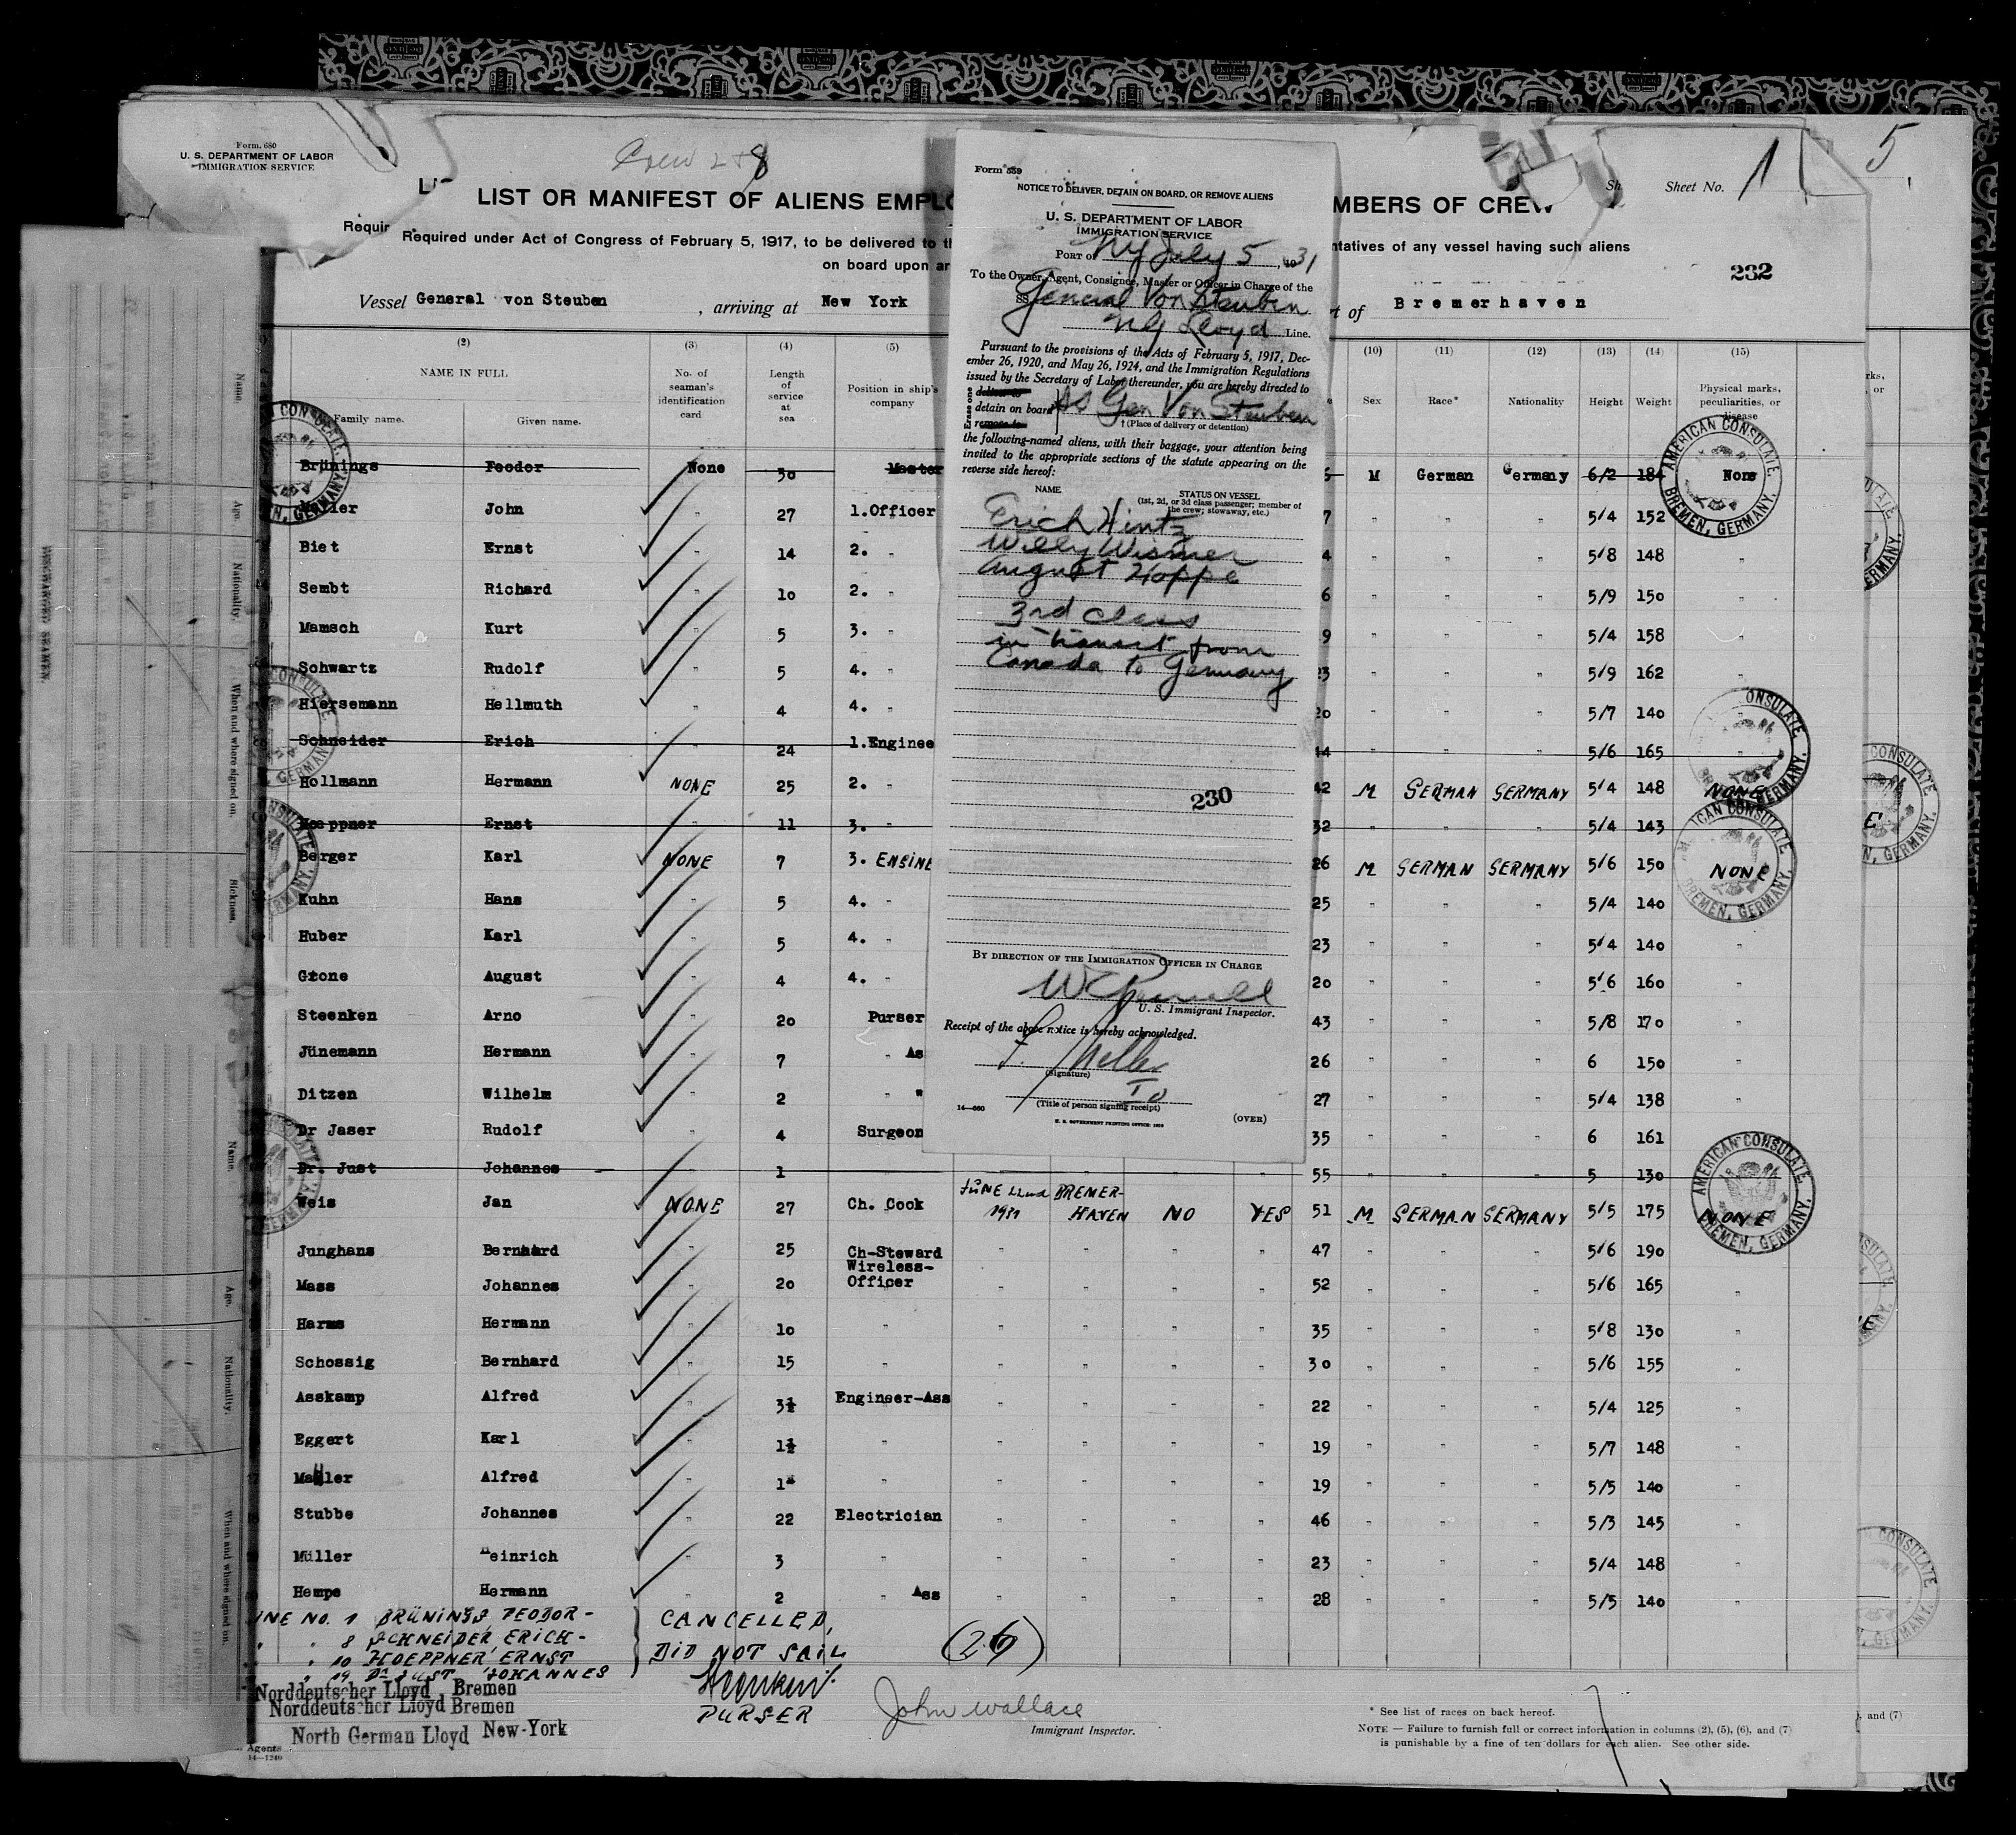 Form. 680
U. S. DEPARTMENT OF LABOR
IMMIGRATION SERVICE
Crew
8
Sheet No. 1
5
LIST OR MANIFEST OF ALIENS EMPLO
MBERS OF CREW
Required under Act of Congress of February 5, 1917, to be delivered to th
ntatives of any vessel having such aliens
on board upon ar
232
Vessel General von Steuben , arriving at New York
rt of Bremerhaven
(2) (3) (4) (5) (10) (11) (12) (13) (14) (15)
NAME IN FULL
Family name. Given name.
No. of seaman's identification card
Length of service at sea
Position in ship's company
Sex Race* Nationality Height Weight Physical marks, peculiarities, or disease
Brünings Feodor None 30 Master M German Germany 6/2 184 None
John 27 1.Officer 7 " " " 5/4 152 "
Biet Ernst " 14 2. " 4 " " " 5/8 148 "
Sembt Richard " 10 2. " 6 " " " 5/9 150 "
Mamsch Kurt " 5 3. " 9 " " " 5/4 158 "
Schwartz Rudolf " 5 4. " 23 " " " 5/9 162 "
Hiersemann Hellmuth " 4 4. " 20 " " " 5/7 140
Schneider Erich " 24 1.Enginee 44 " " " 5/6 165 "
Hollmann Hermann NONE 25 2. " 42 M GERMAN GERMANY 5/4 148 NONE
Hoeppner Ernst " 11 3. " 32 " " " 5/4 143
Berger Karl NONE 7 3. ENGINE 26 M GERMAN GERMANY 5/6 150 NONE
Kuhn Hans " 5 4. " 25 " " " 5/4 140 "
Huber Karl " 5 4. " 23 " " " 5/4 140 "
Grone August " 4 4. " 20 " " " 5/6 160 "
Steenken Arno " 20 Purser 43 " " " 5/8 170 "
Jünemann Hermann " 7 " As 26 " " " 6 150 "
Ditzen Wilhelm " 2 " " 27 " " " 5/4 138 "
Dr Jaser Rudolf " 4 Surgeon 35 " " " 6 161 "
Dr. Just Johannes " 1 55 " " " 5 130
Weis Jan NONE 27 Ch. Cook JUNE 22nd 1931 BREMER-HAVEN NO YES 51 M GERMAN GERMANY 5/5 175 NONE
Junghans Bernhard " 25 Ch-Steward " " " " 47 " " " 5/6 190 "
Mass Johannes " 20 Wireless-Officer " " " " 52 " " " 5/6 165 "
Harms Hermann " 10 " " " " " 35 " " " 5/8 130 "
Schossig Bernhard " 15 " " " " " 30 " " " 5/6 155 "
Asskamp Alfred " 3½ Engineer-Ass " " " " 22 " " " 5/4 125 "
Eggert Karl " 1½ " " " " " 19 " " " 5/7 148 "
Alfred " 1 " " " " " 19 " " " 5/5 140 "
Stubbe Johannes " 22 Electrician " " " " 46 " " " 5/3 145 "
Müller Heinrich " 3 " " " " " 23 " " " 5/4 148 "
Hempe Hermann " 2 " Ass " " " " 28 " " " 5/5 140 "
INE NO. 1 BRÜNINGS, FEODOR -
" " 8 SCHNEIDER, ERICH -
" " 10 HOEPPNER, ERNST
" 19 Dr JUST JOHANNES
CANCELLED,
DID NOT SAIL
Steenken
PURSER
(26)
Norddeutscher Lloyd Bremen
Norddeutscher Lloyd Bremen
North German Lloyd New-York
Agents
14—1240
John Wallace
Immigrant Inspector.
* See list of races on back hereof.
NOTE — Failure to furnish full or correct information in columns (2), (5), (6), and (7)
is punishable by a fine of ten dollars for each alien. See other side.
, and (7)
Form 539
NOTICE TO DELIVER, DETAIN ON BOARD, OR REMOVE ALIENS
U. S. DEPARTMENT OF LABOR
IMMIGRATION SERVICE
PORT of NY July 5, 1931
To the Owner, Agent, Consignee, Master or Officer in Charge of the
SS General Von Steuben
NG Lloyd Line.
Pursuant to the provisions of the Acts of February 5, 1917, Dec-
ember 26, 1920, and May 26, 1924, and the Immigration Regulations
issued by the Secretary of Labor thereunder, you are hereby directed to
Erase one
deliver to
detain on board SS Gen Von Steuben
remove to
† (Place of delivery or detention)
the following-named aliens, with their baggage, your attention being
invited to the appropriate sections of the statute appearing on the
reverse side hereof:
NAME
STATUS ON VESSEL
(1st, 2d, or 3d class passenger; member of
the crew; stowaway, etc.)
Erich Hintz
Willy Wismer
August Hoppe
3rd class
in transit from
Canada to Germany
230
BY DIRECTION OF THE IMMIGRATION OFFICER IN CHARGE
U. S. Immigrant Inspector.
Receipt of the above notice is hereby acknowledged.
(Signature)
(Title of person signing receipt)
14—660
U. S. GOVERNMENT PRINTING OFFICE
(OVER)
AMERICAN CONSULATE.
BREMEN, GERMANY.
AMERICAN CONSULATE.
BREMEN, GERMANY.
Name.
Age.
Nationality.
When and where signed on.
Sickness.
Name.
Age.
Nationality.
When and where signed on.